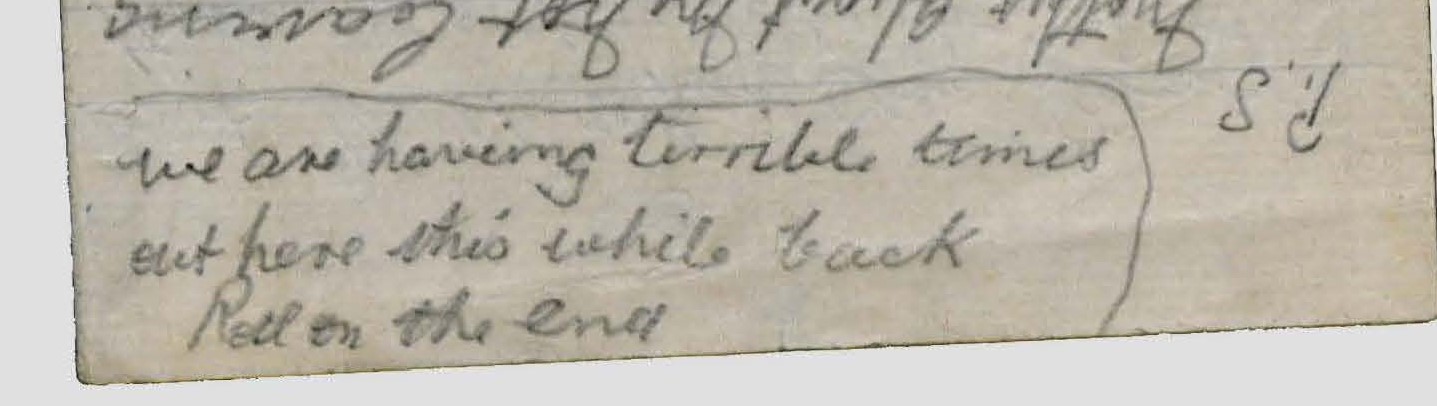 P.S
we are haveing terrible times
out here this while back
Roll on the end